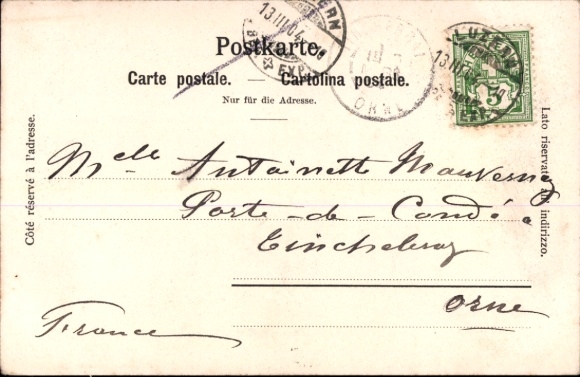 Postkarte.
Carte postale. — Cartolina postale.
Nur für die Adresse.
Côté réservé à l'adresse.
Lato riservato all' indirizzo.
LUZERN
13 III 04
EXP.
LUZERN
13 III 04
ORNE
5
Mlle Antoinette Mauverney
Porte-de-Condé à
Tinchebray
Orne
France